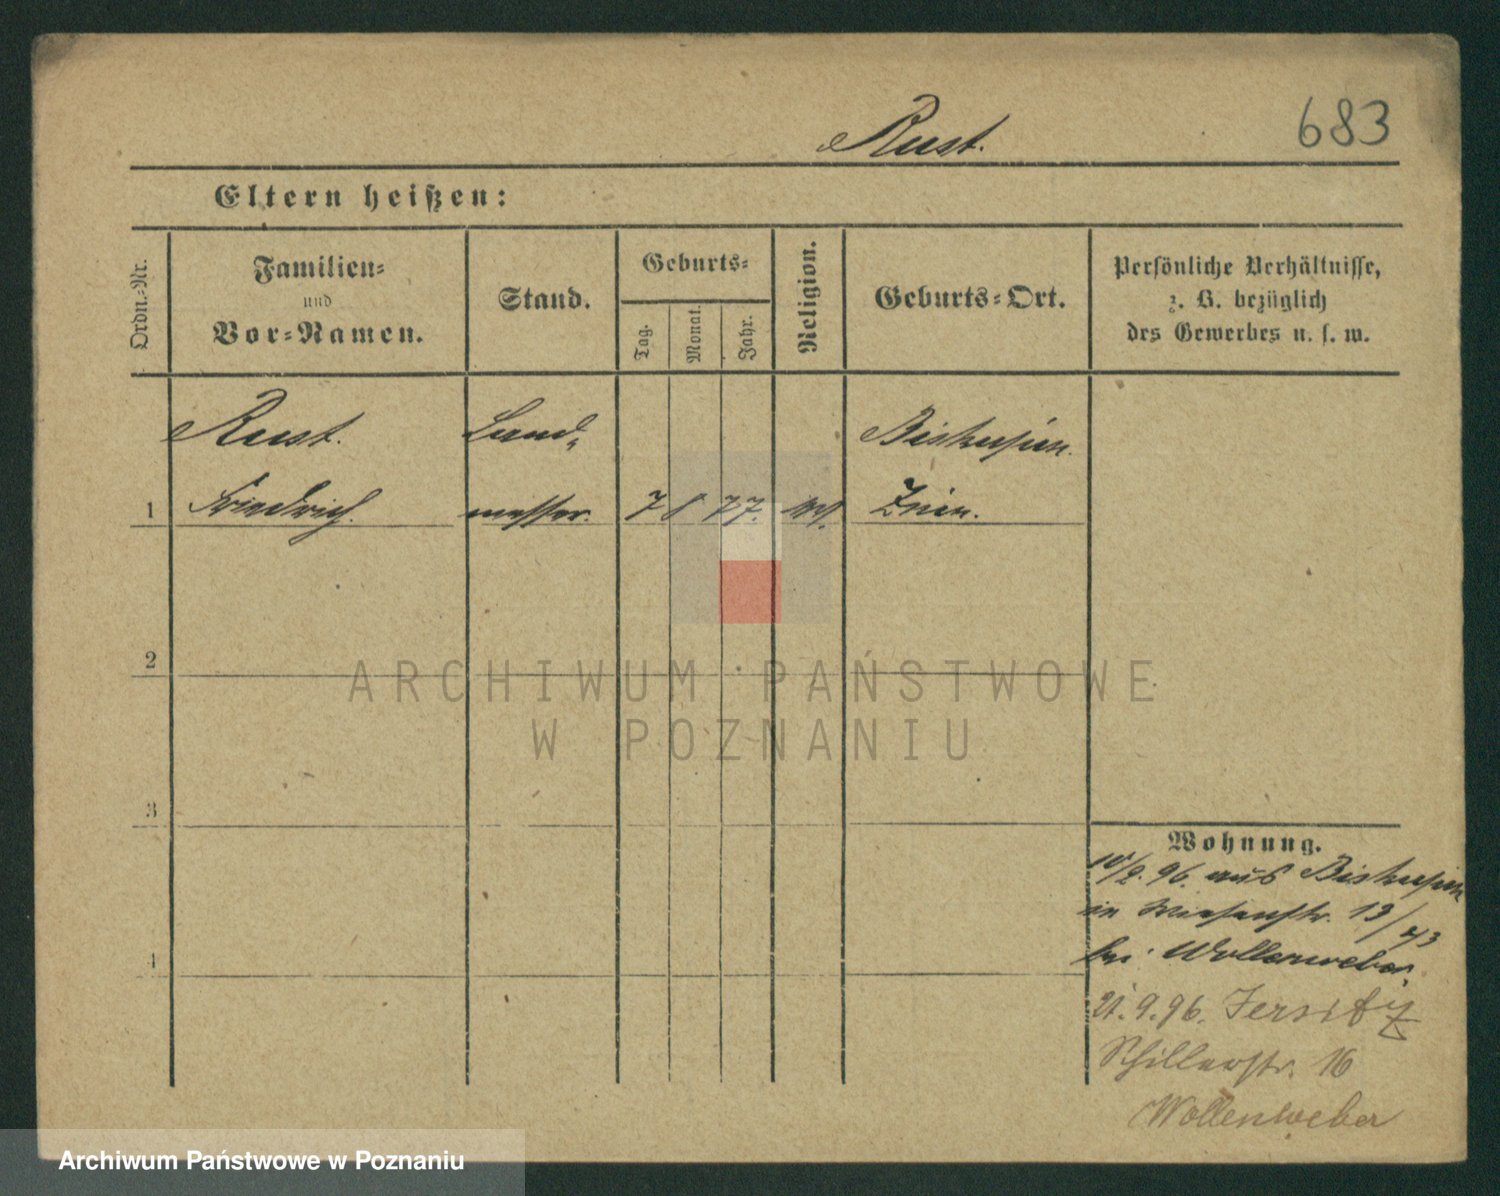 Rust.
683
Eltern heißen:
Ordn.-Nr.
Familien-
und
Vor-Namen.
Stand.
Geburts-
Tag.
Monat.
Jahr.
Religion.
Geburts-Ort.
Persönliche Verhältnisse,
z. B. bezüglich
des Gewerbes u. s. w.
Rust.
Land-
Biskupin.
1
Friedrich.
messer.
7 8 77.
Znin.
2
ARCHIWUM PAŃSTWOWE
W POZNANIU
3
Wohnung.
96. aus Biskupin
in Wiesenstr. 13/43
bei Wollenweber.
4
21.9.96. Jersitz
Schillerstr. 16
Wollenweber
Archiwum Państwowe w Poznaniu